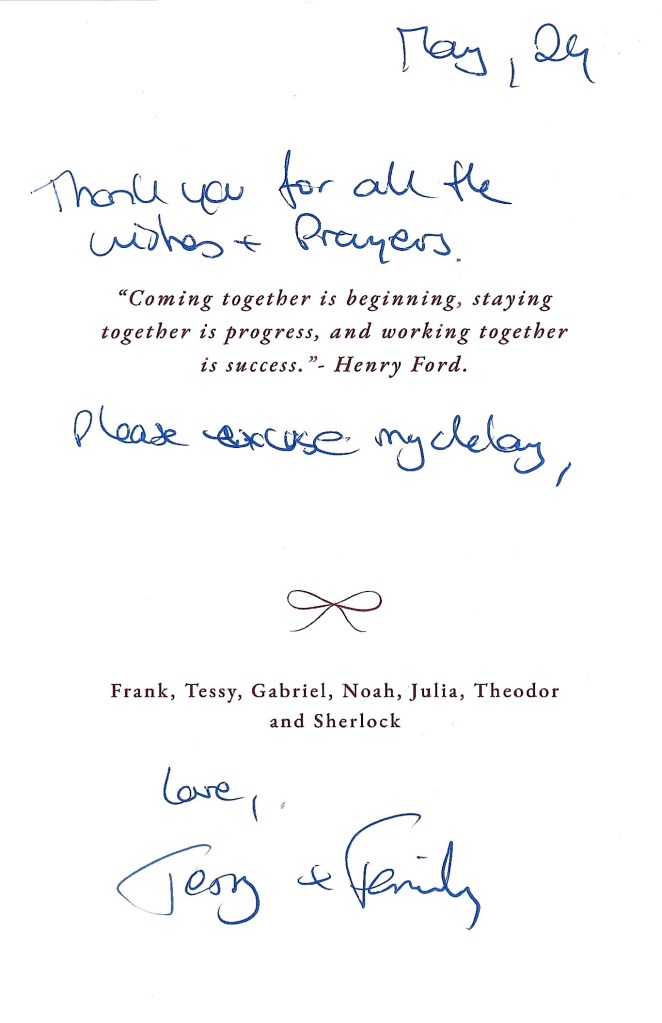 May, 24
Thank you for all the
wishes + Prayers.
“Coming together is beginning, staying
together is progress, and working together
is success.”- Henry Ford.
Please excuse my delay,
Frank, Tessy, Gabriel, Noah, Julia, Theodor
and Sherlock
Love,
Tessy + Family